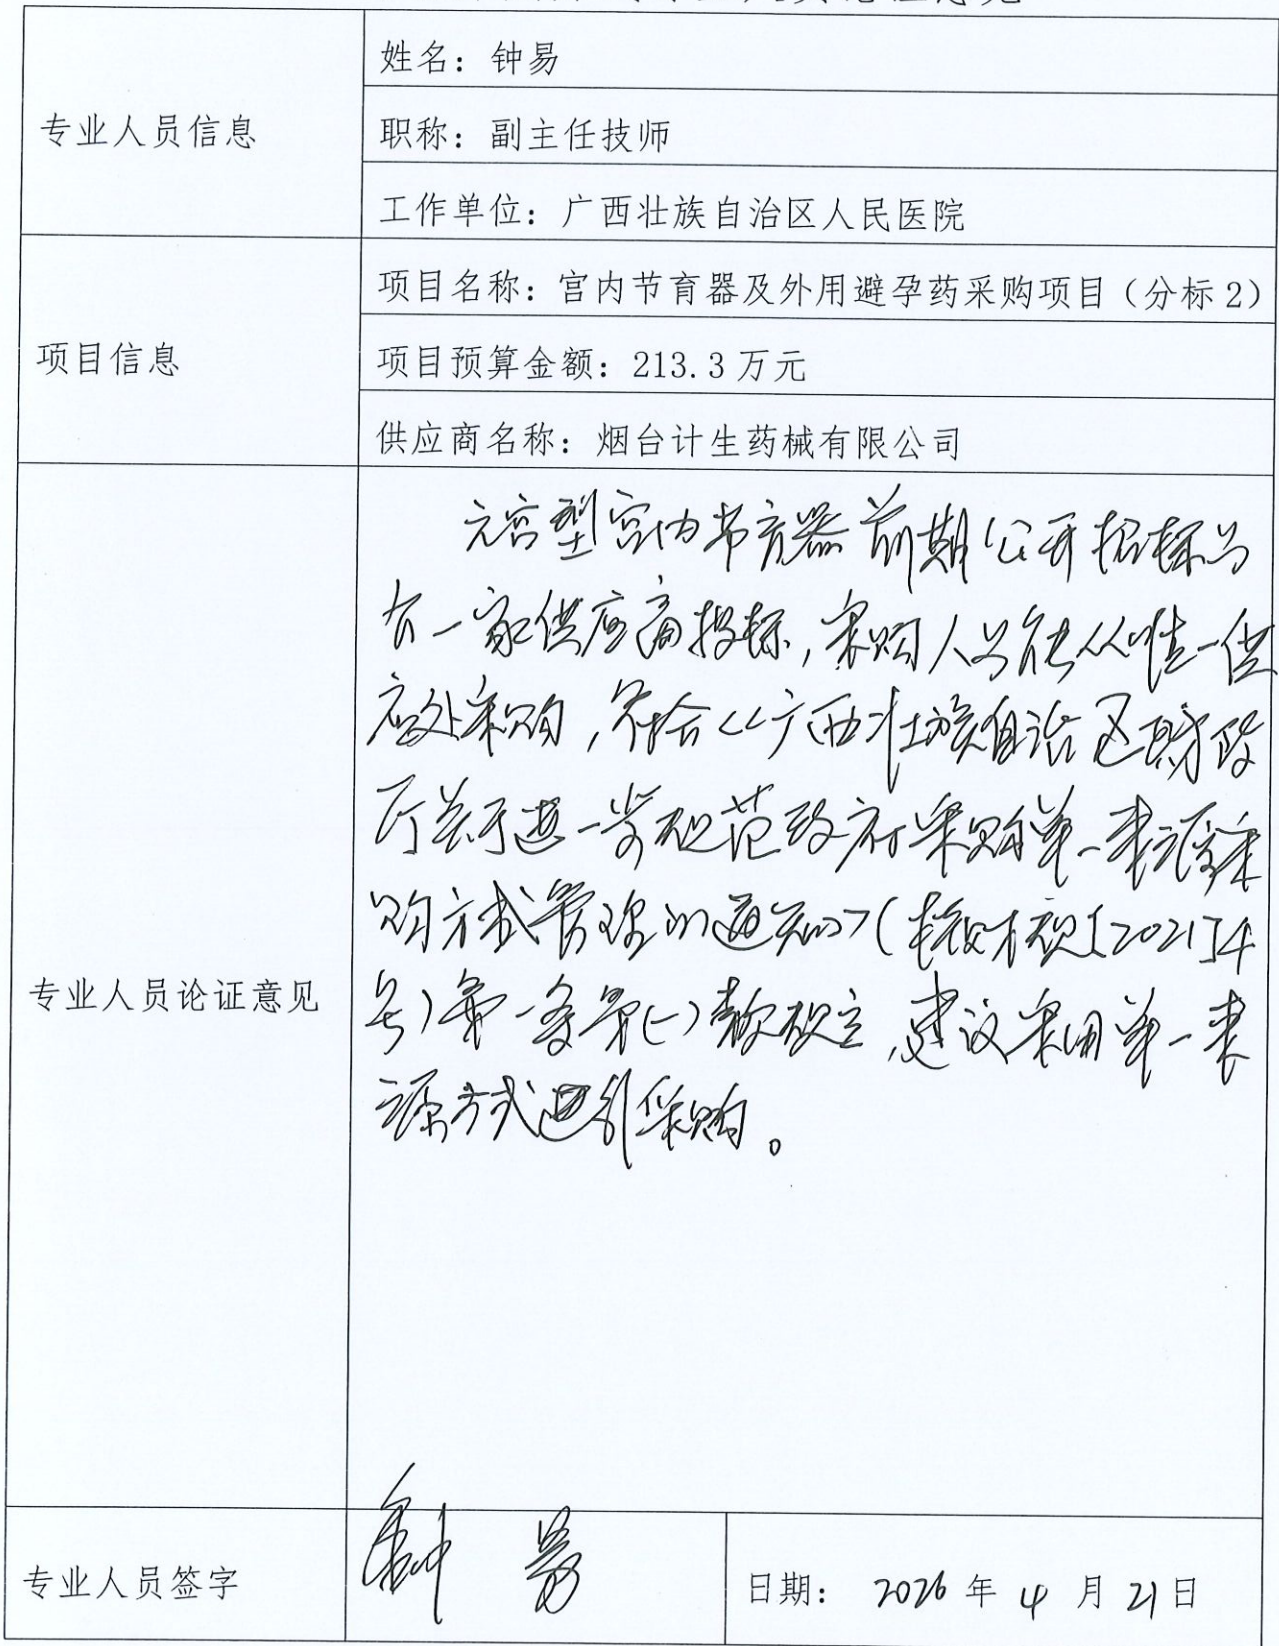 专业人员信息
姓名：钟易
职称：副主任技师
工作单位：广西壮族自治区人民医院
项目信息
项目名称：宫内节育器及外用避孕药采购项目（分标2）
项目预算金额：213.3万元
供应商名称：烟台计生药械有限公司
专业人员论证意见
元宫型宫内节育器前期公开招标只
有一家供应商投标，采购人只能从唯一供
应处采购，符合《广西壮族自治区财政
厅关于进一步规范政府采购单一来源采
购方式管理的通知》（桂财规〔2021〕4
号）第一条第（一）款规定，建议采用单一来
源方式进行采购。
专业人员签字
钟易
日期：2026年4月21日